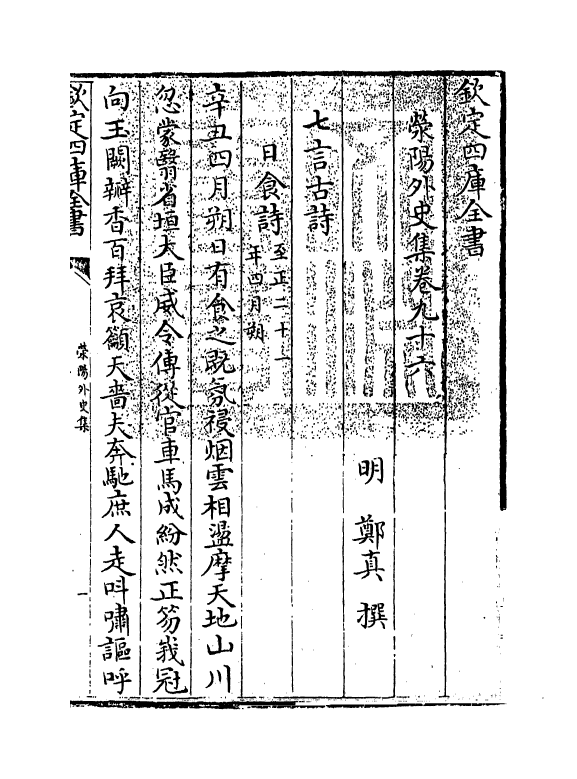 欽定四庫全書
滎陽外史集卷九十六
明 鄭真 撰
七言古詩
日食詩至正二十一年四月朔
辛丑四月朔日有食之既氛祲烟雲相盪摩天地山川
忽蒙翳省垣大臣威令傳從官車馬成紛然正笏峩冠
向玉闕瓣香百拜哀籲天嗇夫奔馳庶人走呌嘯謳呼
欽定四庫全書
滎陽外史集
一